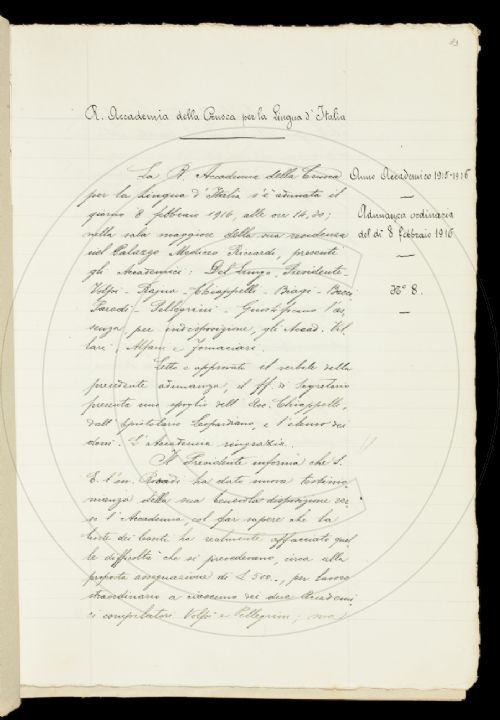 R. Accademia della Crusca per la Lingua d'Italia
Anno Accademico 1915-1916
Adunanza ordinaria
del dì 8 febbraio 1916
N° 8.
La R. Accademia della Crusca
per la Lingua d'Italia s'è adunata il
giorno 8 febbraio 1916, alle ore 14,30;
nella sala maggiore della sua residenza
nel Palazzo Mediceo Riccardi, presenti
gli Accademici: Del Lungo, Presidente -
Volpi - Rajna - Chiappelli - Biagi - Bacci
Parodi - Pellegrini - Giustificano l'as
senza per indisposizione, gli Accad. Vil
lari, Alfani e Fornaciari.
Letto e approvato il verbale della
precedente adunanza, il ff. di Segretario
presenta uno spoglio dell' Acc. Chiappelli,
dall' Epistolario Leopardiano, e l'elenco dei
doni. L'Accademia ringrazia.
Il Presidente informa che S.
E. l'on. ha dato nuova testimo
nianza della sua benevola disposizione ver
so l'Accademia col far sapere che la
Corte dei Conti ha realmente affacciato quel
le difficoltà che si prevedevano, circa alla
proposta assegnazione di L 500., per lavoro
straordinario a ciascuno dei due Accademi
ci compilatori Volpi e Pellegrini; ma